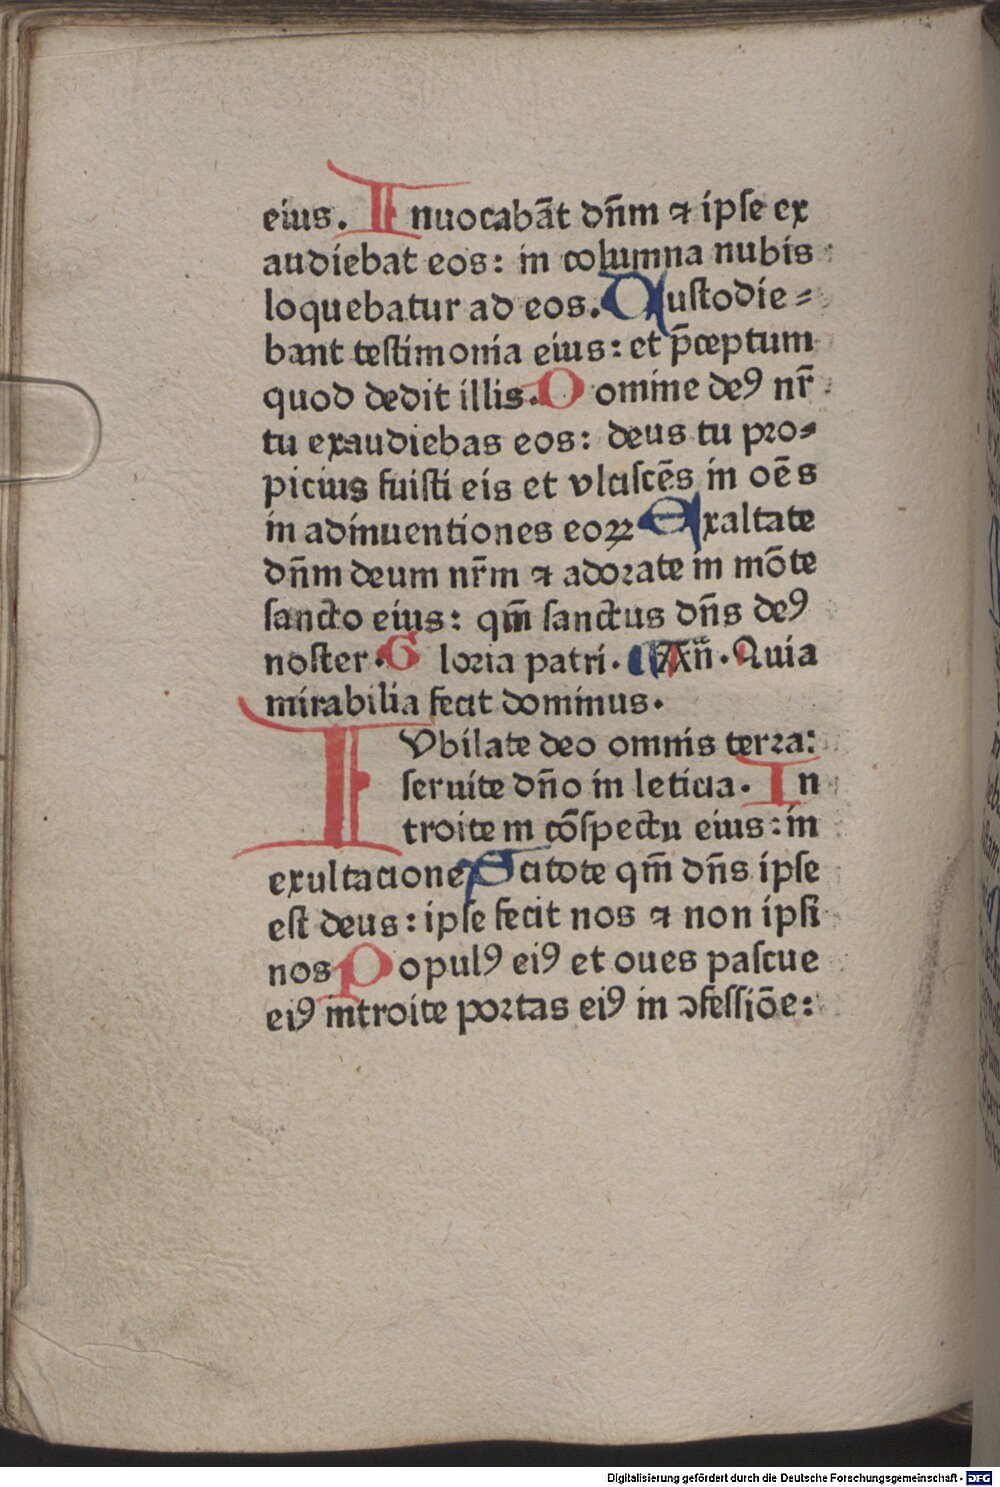 eius. Inuocabāt dn̄m ⁊ ipſe ex
audiebat eos: in columna nubis
loquebatur ad eos. Cuſtodie⸗
bant teſtimonia eius: et p̄ceptum
quod dedit illis. Domine deꝰ nr̄
tu exaudiebas eos: deus tu pꝛo⸗
picius fuiſti eis et vlciſcēs in oēs
in adinuentiones eoꝝ Exaltate
dn̄m deum nr̄m ⁊ adoꝛate in mōte
ſancto eius: qm̄ ſanctus dn̄s deꝰ
noſter. Gloꝛia patri. An̄. Quia
mirabilia fecit dominus.
IVbilate deo omnis terꝛa:
ſeruite dn̄o in leticia. In
troite in cōſpectu eius: in
exultacione Scitote qm̄ dn̄s ipſe
eſt deus: ipſe fecit nos ⁊ non ipſi
nos Populꝰ eiꝰ et oues paſcue
eiꝰ introite poꝛtas eiꝰ in ↄfeſſiōe:
Digitalisierung gefördert durch die Deutsche Forschungsgemeinschaft - DFG